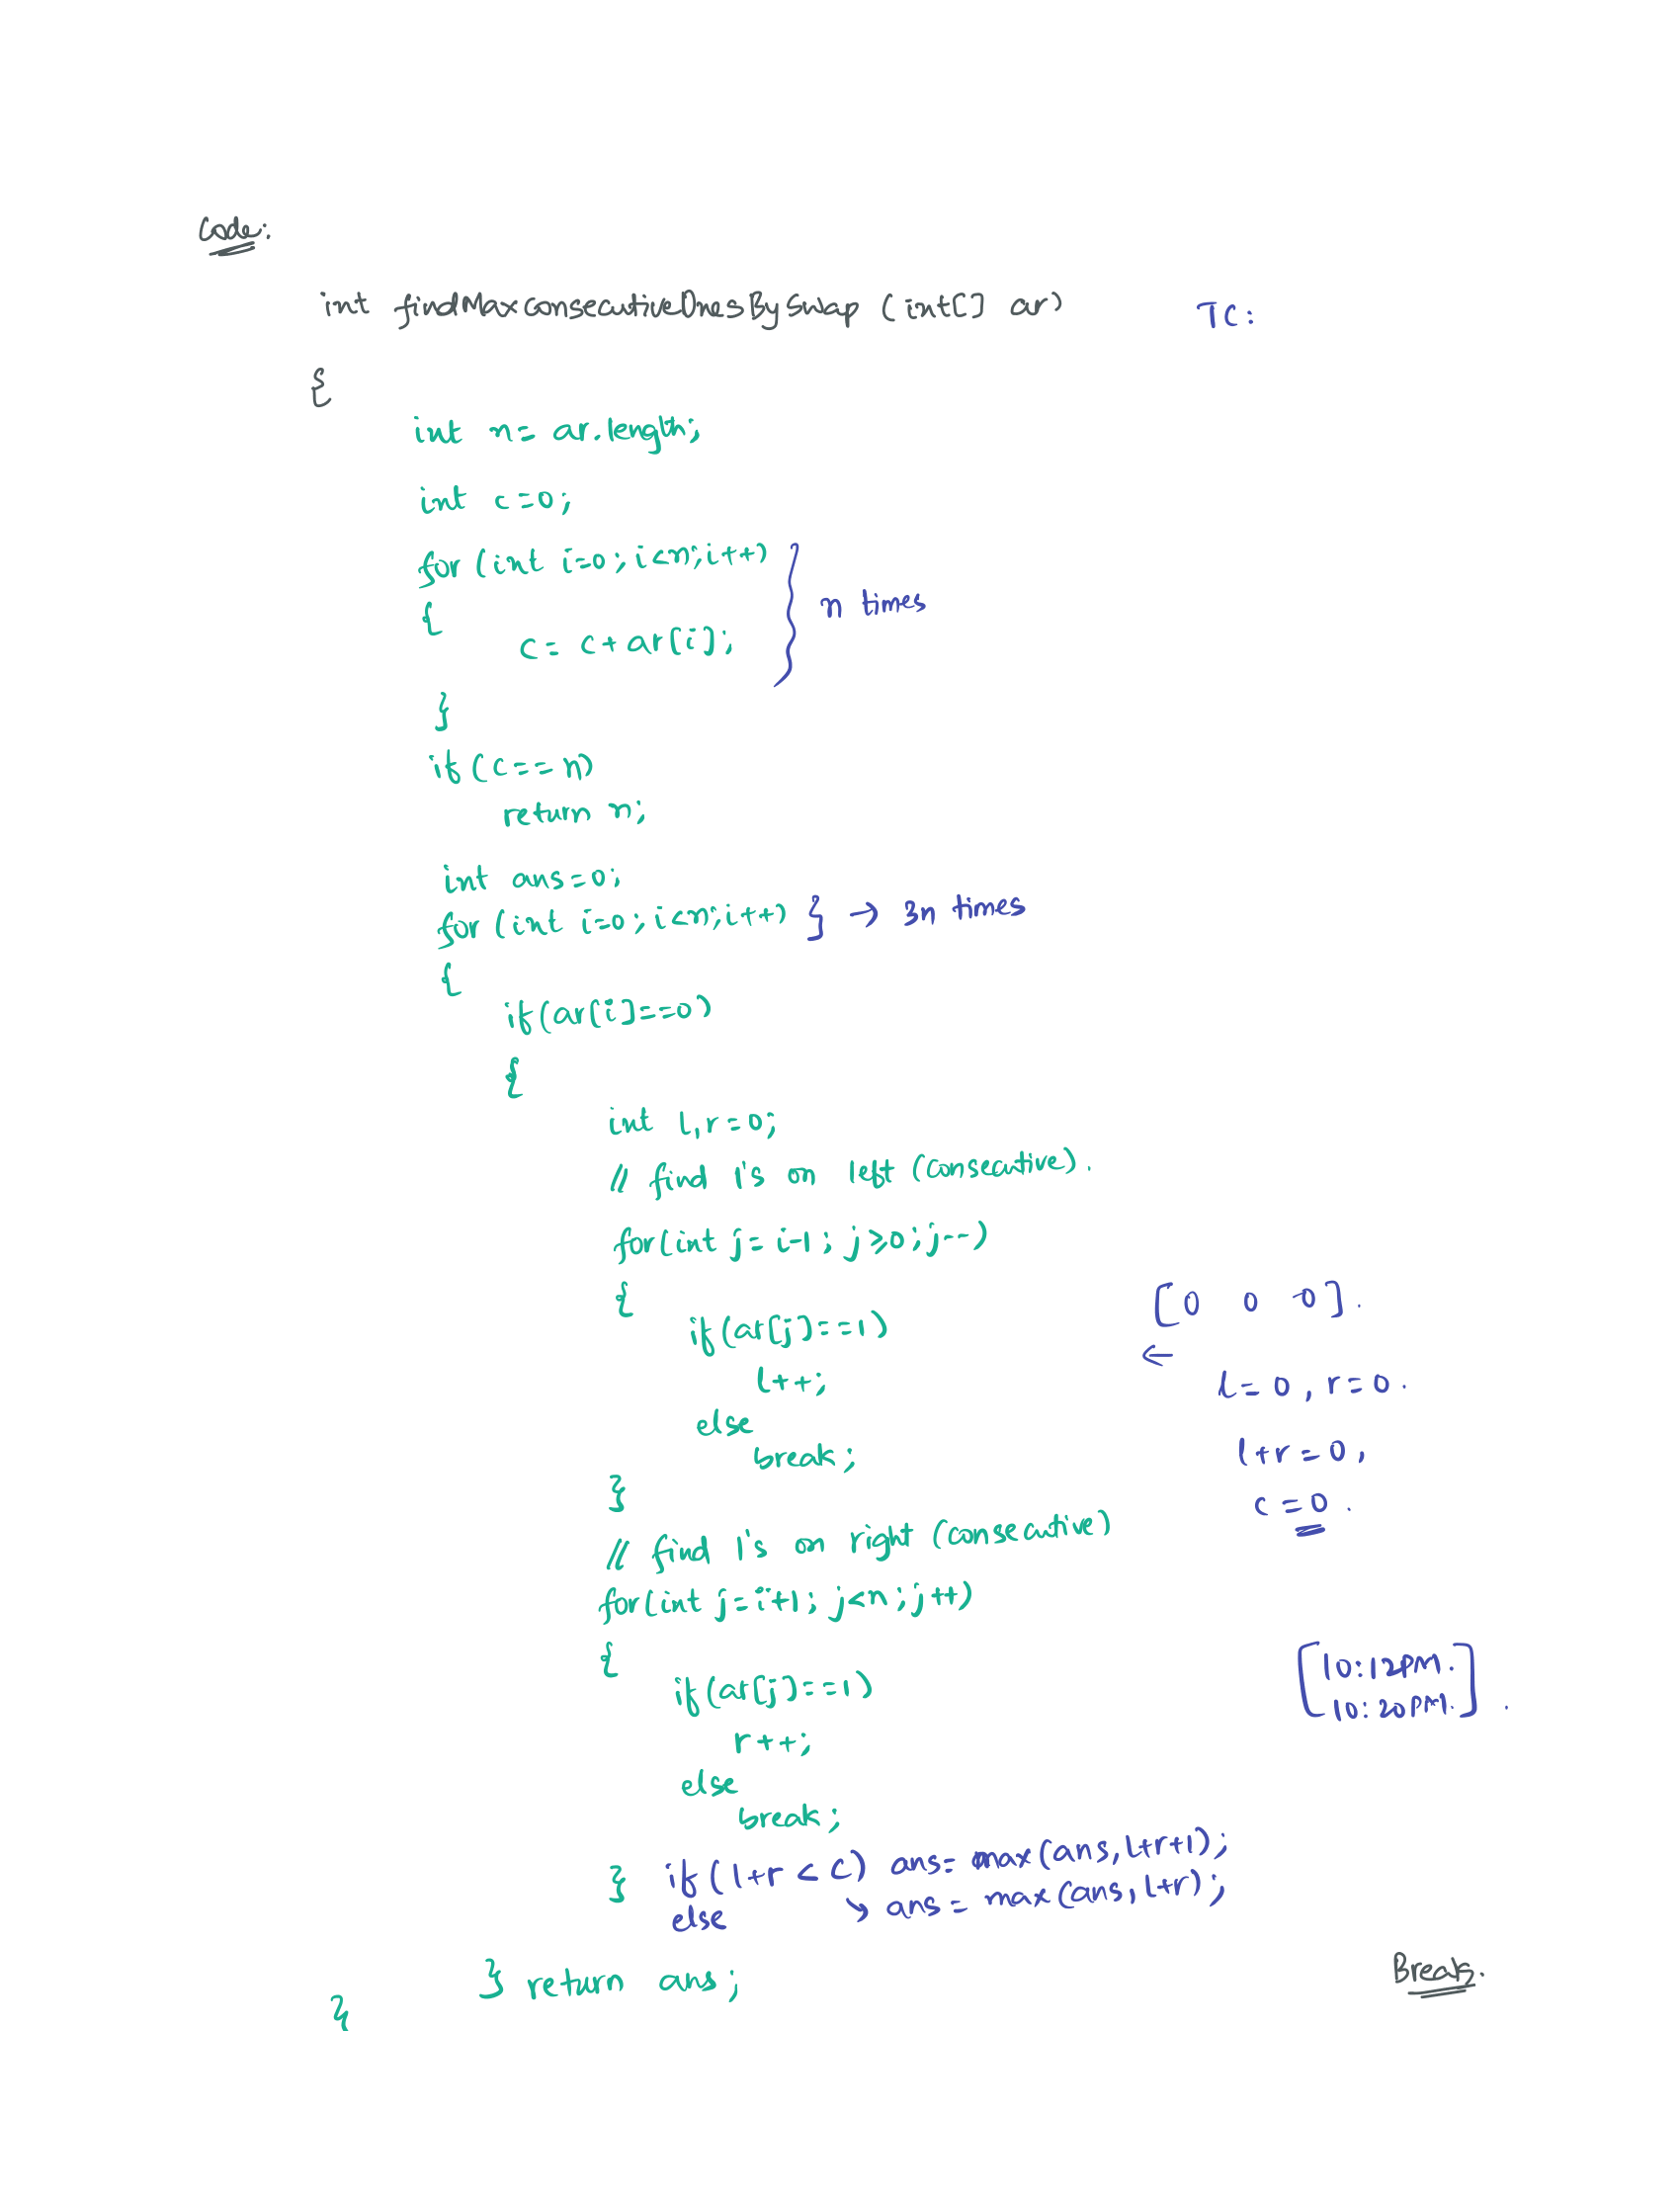 Code:
int findMaxConsecutiveOnesBySwap (int[] ar)
TC:
{
int n= ar.length;
int c=0;
for (int i=0; i<n; i++)
{
n times
c= c+ar[i];
}
if (c==n)
return n;
int ans=0;
for (int i=0; i<n; i++) } → 3n times
{
if(ar[i]==0)
{
int l,r=0;
// find 1's on left (consecutive).
for(int j= i-1; j≥0; j--)
{
[0 0 0].
if(ar[j]==1)
←
l++;
l=0, r=0.
else
break;
l+r=0,
}
c=0.
// find 1's on right (consecutive)
for(int j=i+1; j<n; j++)
{
[10:12PM.
10:20PM.].
if(ar[j]==1)
r++;
else
break;
} if(l+r < c) ans= max(ans, l+r+1);
else ↘ ans= max(ans, l+r);
} return ans;
Break.
}